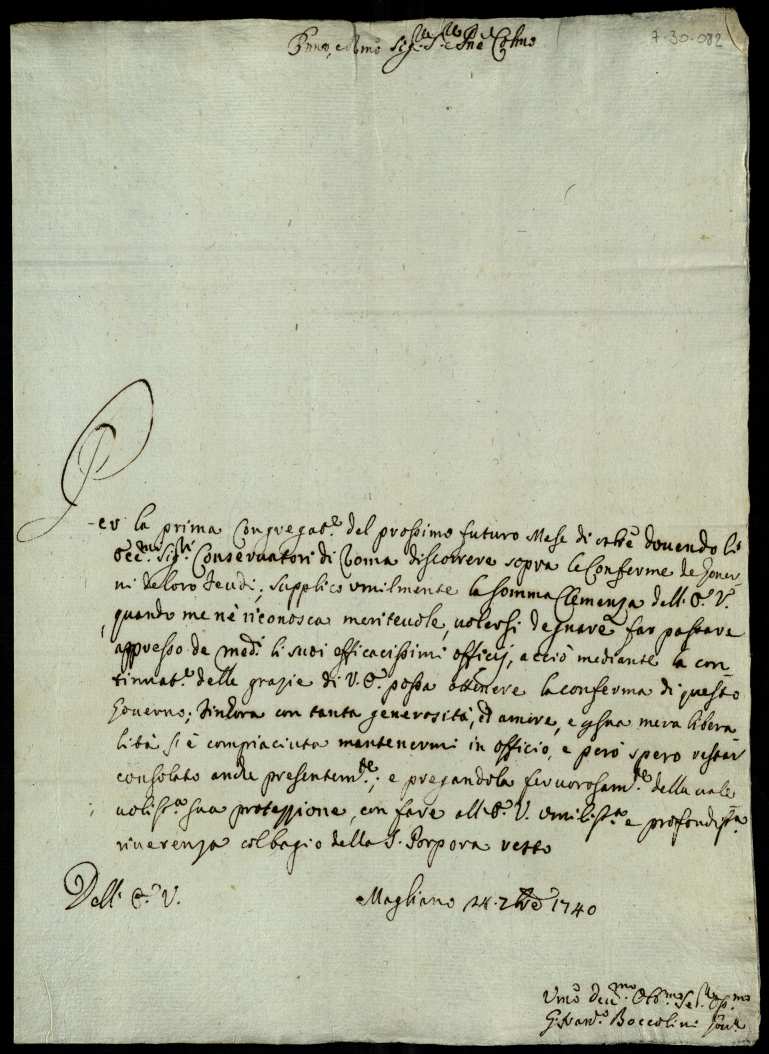 7-30-082
Emo, e Rmo Sig.re Sig.re e Pne Colmo
Per la prima Congregat.e del prossimo futuro Mese di 8bre dovendo li
Ecc.mi Sig.ri Conservatori di Roma discorrere sopra le Conferme de Gover-
ni de loro feudi; supplico umilmente la somma Clemenza dell' E.V.
quando me ne riconosca meritevole, volersi degnare far passare
appresso de med.i li suoi efficacissimi officij, acciò mediante la con-
tinuat.e delle grazie di V.E. possa ottenere la conferma di questo
Governo; sin hora con tanta generosità, ed amore, e sua mera libera
lità si è compiaciuta mantenermi in officio, e però spero restar
consolato anche presentem.te, e pregandola fervorosam.te della vale
volis.ma sua protezzione, con fare all' E.V. umilis.ma e profondis.ma
riverenza col bagio della S. Porpora resto
Dell' E.V. Magliano 28. 7bre 1740
Umo Dev.mo Obb.mo Se.re
G. Fran.co Boccolini Gov.re